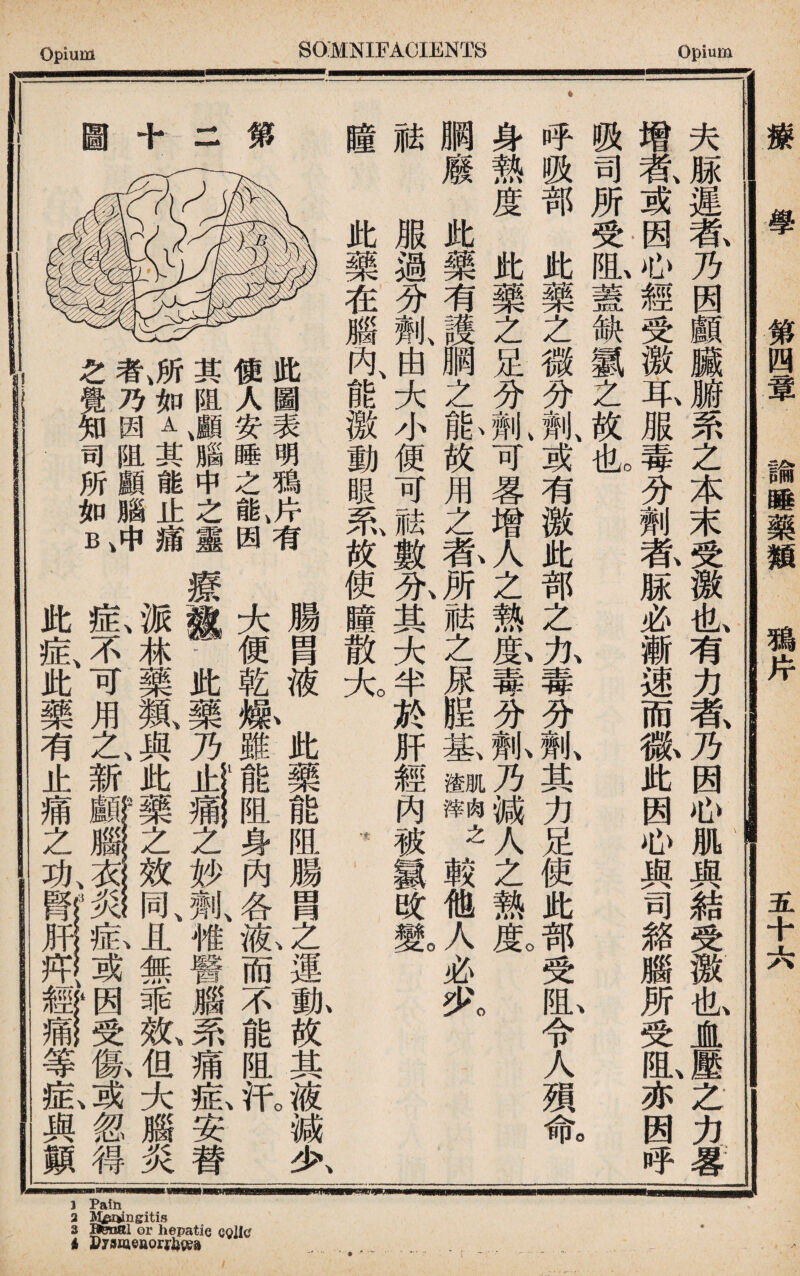 Opium
SOMNIFACIENTS
Opium
療學 第四章 論睡藥類 鴉片 五十六
夫脉遲者、乃因顱臟腑系之本末受激也、有力者、乃因心肌與結受激也、血壓之力畧
增者、或因心經受激耳、服毒分劑者、脉必漸速而微、此因心與司絡腦所受阻、亦因呼
吸司所受阻、蓋缺䨱之故也。
呼吸部 此藥之微分劑、或有激此部之力、毒分劑、其力足使此部受阻、令人殞命。
身熱度 此藥之足分劑、可畧增人之熱度、毒分劑、乃減人之熱度。
膶廢 此藥有護膶之能、故用之者、所祛之尿脭基、肌肉之渣滓 較他人必少。
祛 服過分劑、由大小便可祛數分、其大半於肝經內被䨱改變。
瞳 此藥在腦內、能激動眼系、故使瞳散大。
第二十圖
B
此圖表明鴉片有
使人安睡之能、因
其阻顱腦中之靈
所如A、其能止痛
者、乃因阻顱腦中
之覺知司所如B、
腸胃液 此藥能阻腸胃之運動、故其液減少、
大便乾燥、雖能阻身內各液、而不能阻汗。
療效 此藥乃止痛之妙劑、惟醫腦系痛症、安替
派林藥類、與此藥之效同、且無乖效、但大腦炎
症、不可用之、新顱腦衣炎症、或因受傷、或忽得
此症、此藥有止痛之功、腎肝㽱、經痛等症、與顛
1 Pain
2 Meningitis
3 Renal or hepatic colic
4 Dysmenorrhœa